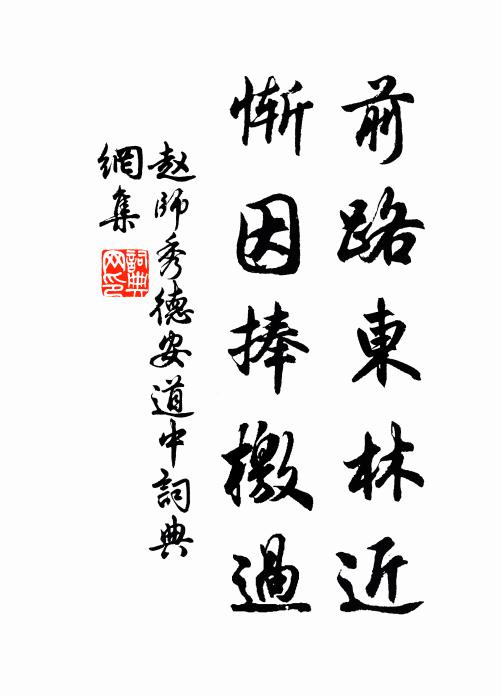 前路東林近
慚因捧檄過
赵師秀德安道中詞典
網集
詞典
网印